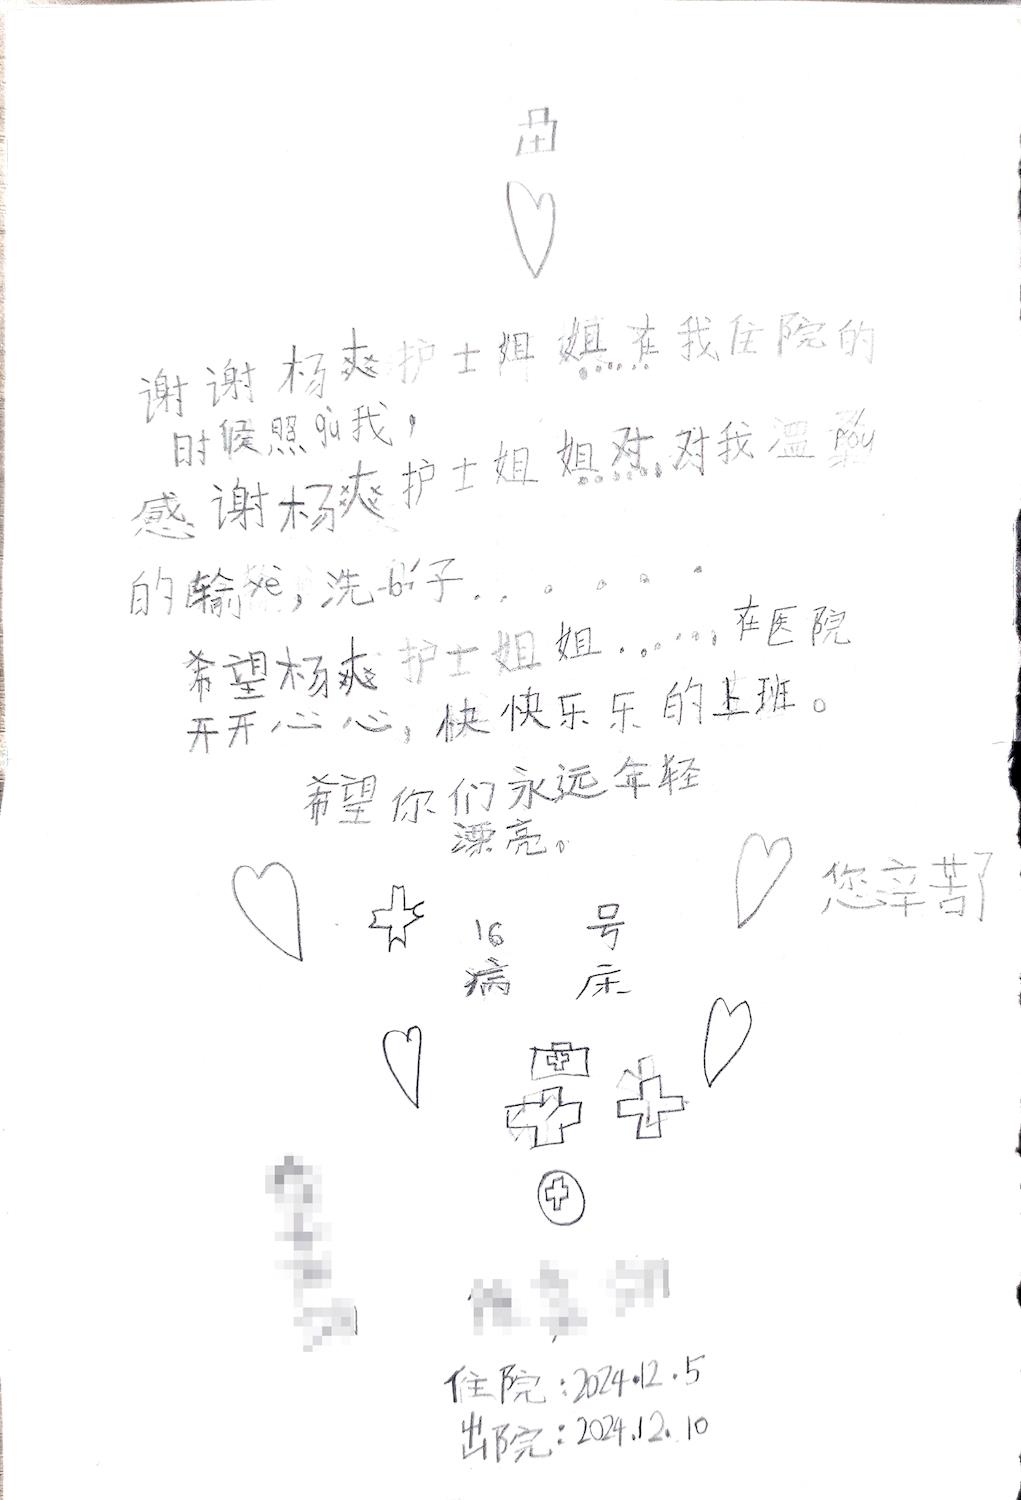 谢谢杨爽护士姐姐……在我住院的
时候照gù我，
感谢杨爽护士姐姐对……对我温rou
的输yè，洗bí子......
希望杨爽护士姐姐……，在医院
开开心心，快快乐乐的上班。
希望你们永远年轻
漂亮。
您辛苦了
16号
病床
住院：2024.12.5
出院：2024.12.10